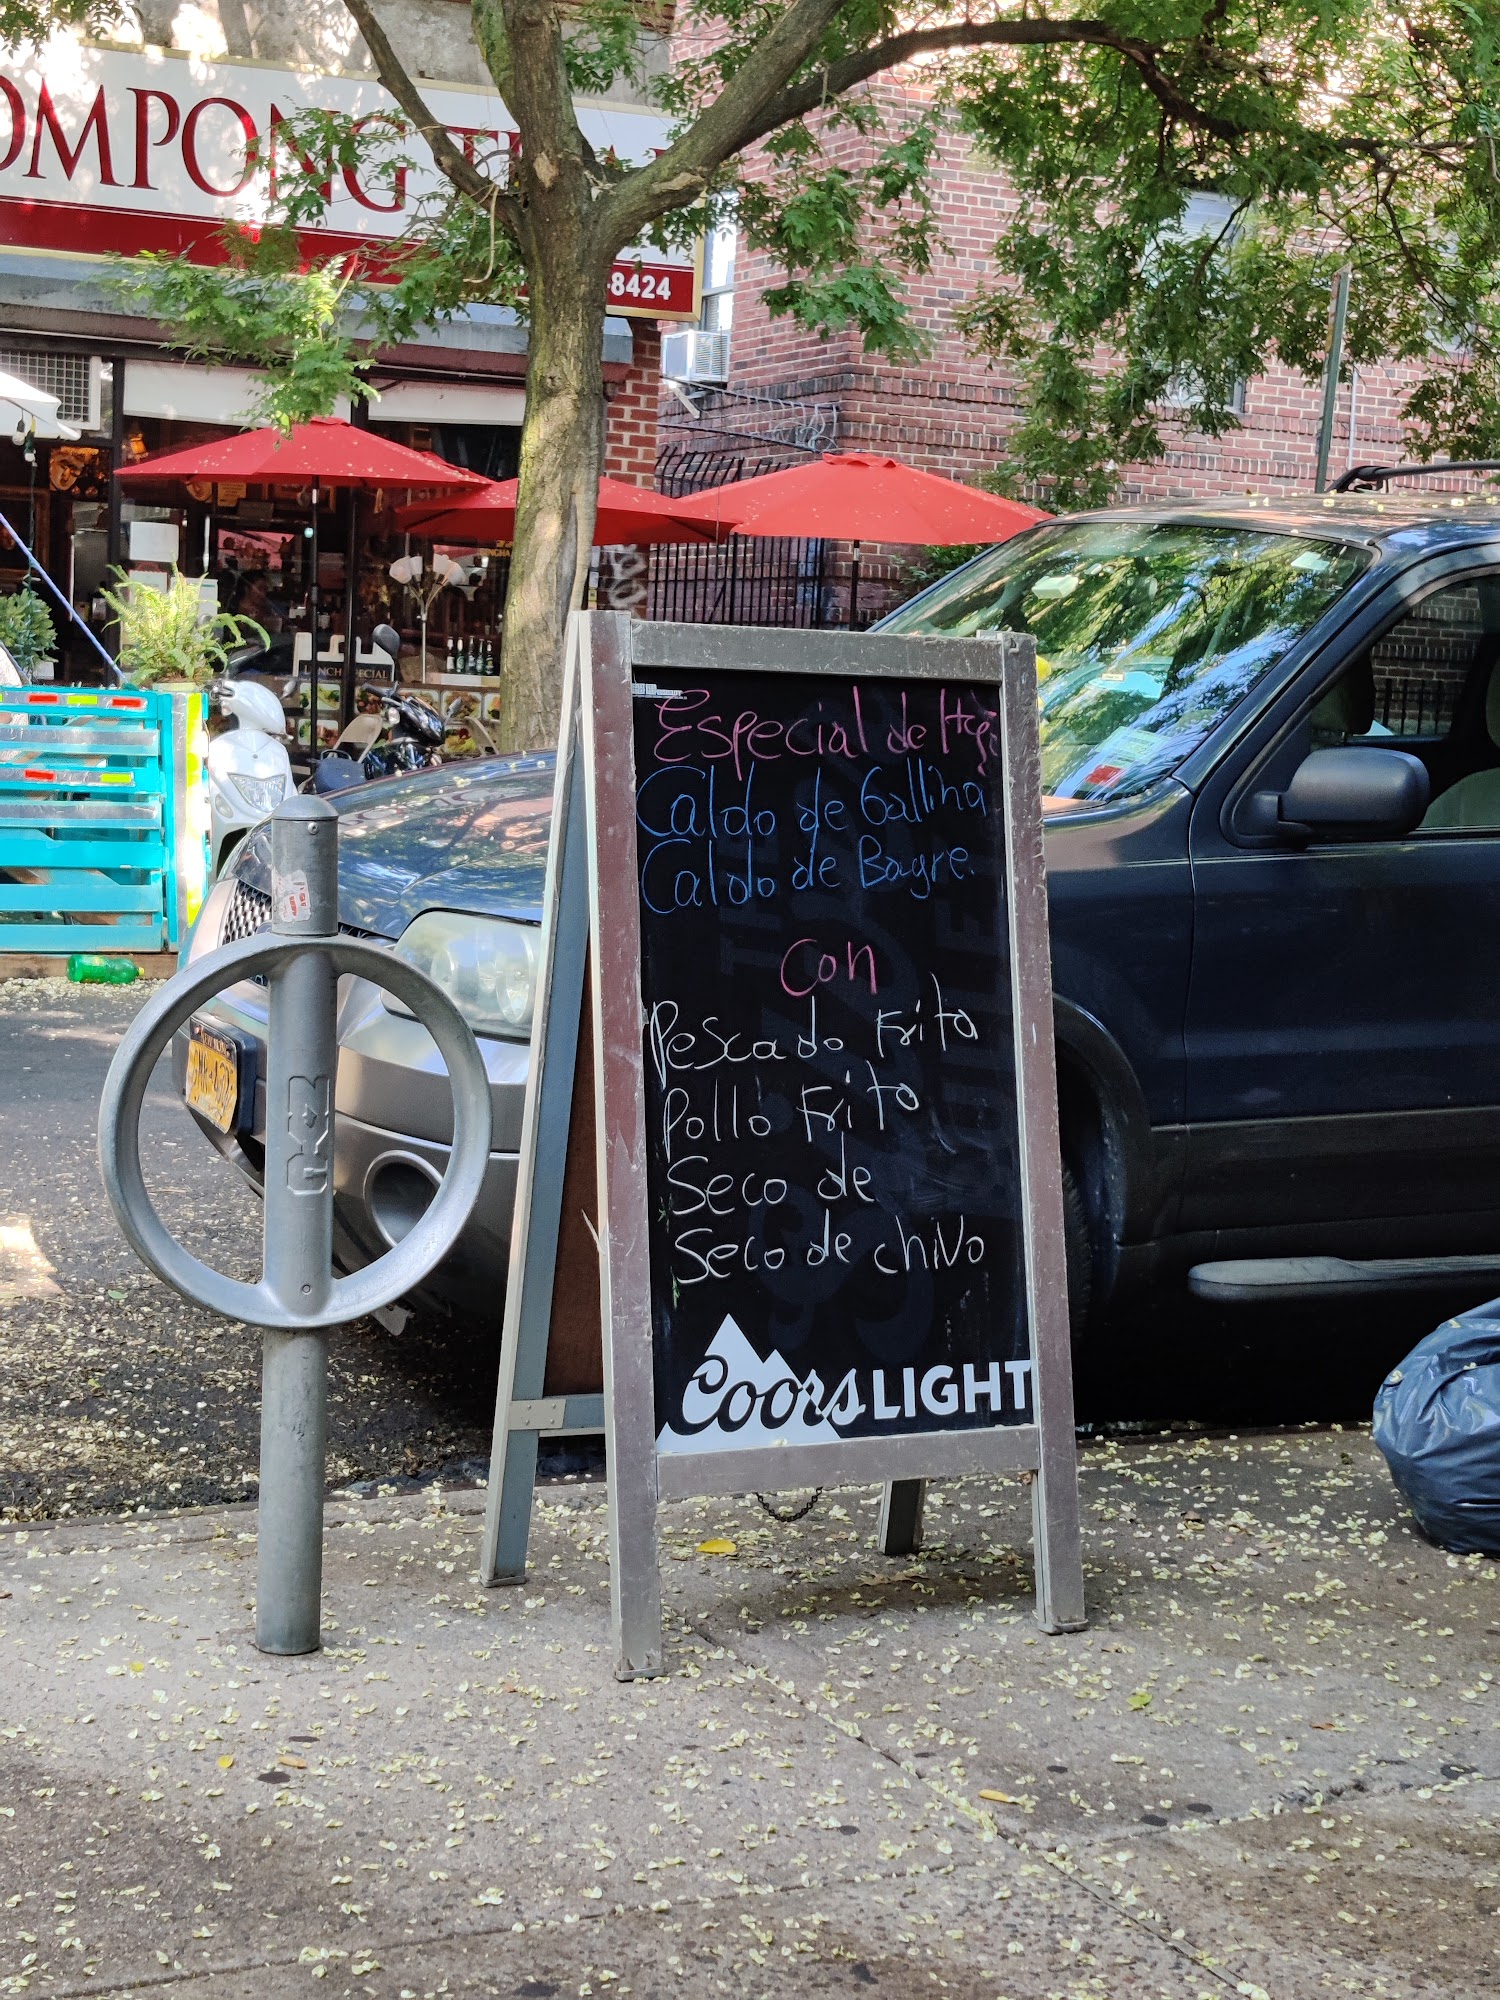 OMPONG THAI
-8424
LUNCH SPECIAL
Especial de Hoy
Caldo de Gallina
Caldo de Bagre.
Con
Pescado Frito
Pollo Frito
Seco de
Seco de chivo
Coors LIGHT
NYC